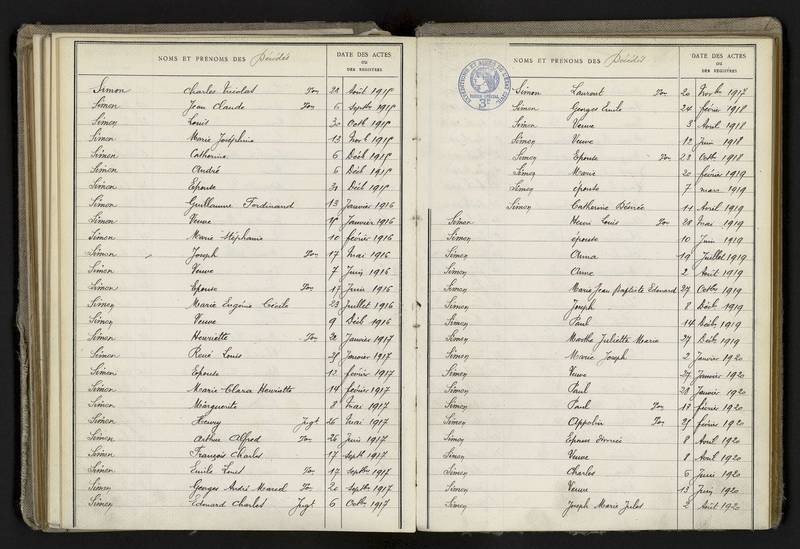 NOMS ET PRÉNOMS DES Décédés
DATE DES ACTES
OU
DES REGISTRES
Simon Charles Nicolas Ton 28 Août 1915
Simon Jean Claude Ton 6 Septbre 1915
Simon Louis 30 Octb 1915
Simon Marie Joséphine 13 Novb 1915
Simon Catherine 6 Décb 1915
Simon André 6 Décb 1915
Simon Epouse 31 Décb 1915
Simon Guillaume Ferdinand 13 Janvier 1916
Simon Veuve Janvier 1916
Simon Marie Stéphanie 10 février 1916
Simon Joseph Ton 17 Mai 1916
Simon Veuve 7 Juin 1916
Simon Epouse Ton 17 Juin 1916
Simon Marie Eugénie Cécile 23 Juillet 1916
Simon Veuve 9 Décb 1916
Simon Henriette Ton 20 Janvier 1917
Simon René Louis Janvier 1917
Simon Epouse 13 février 1917
Simon Marie Clara Henriette 14 février 1917
Simon Marguerite 8 Mai 1917
Simon Henry Jugt 26 Mai 1917
Simon Arthur Alfred Ton 26 Juin 1917
Simon François Charles 17 Septb 1917
Simon Emile Louis Ton 17 Septbre 1917
Simon Georges André Marcel Ton 20 Septbre 1917
Simon Edouard Charles Jugt 6 Octbre 1917
NOMS ET PRÉNOMS DES Décédés
DATE DES ACTES
OU
DES REGISTRES
Simon Laurent Ton 20 Novbre 1917
Simon Georges Emile 24 février 1918
Simon Veuve 3 Avril 1918
Simon Veuve 12 Juin 1918
Simon Epouse Ton 23 Octbre 1918
Simon Marie 20 février 1919
Simon épouse 7 mars 1919
Simon Catherine Désirée 11 Avril 1919
Simon Henri Louis Ton 28 Mai 1919
Simon épouse 10 Juin 1919
Simon Anna 19 Juillet 1919
Simon Anne 2 Août 1919
Simon Marie Jean Baptiste Edouard 27 Octbre 1919
Simon Joseph 8 Décb 1919
Simon Paul 14 Décb 1919
Simon Marthe Juliette Marie 27 Décb 1919
Simon Marie Joseph 2 Janvier 1920
Simon Veuve Janvier 1920
Simon Paul 28 Janvier 1920
Simon Paul Ton 17 février 1920
Simon Appolin Ton février 1920
Simon Epouse divorcée 8 Avril 1920
Simon Veuve 8 Avril 1920
Simon Charles 6 Juin 1920
Simon Veuve 13 Juin 1920
Simon Joseph Marie Jules 2 Août 1920